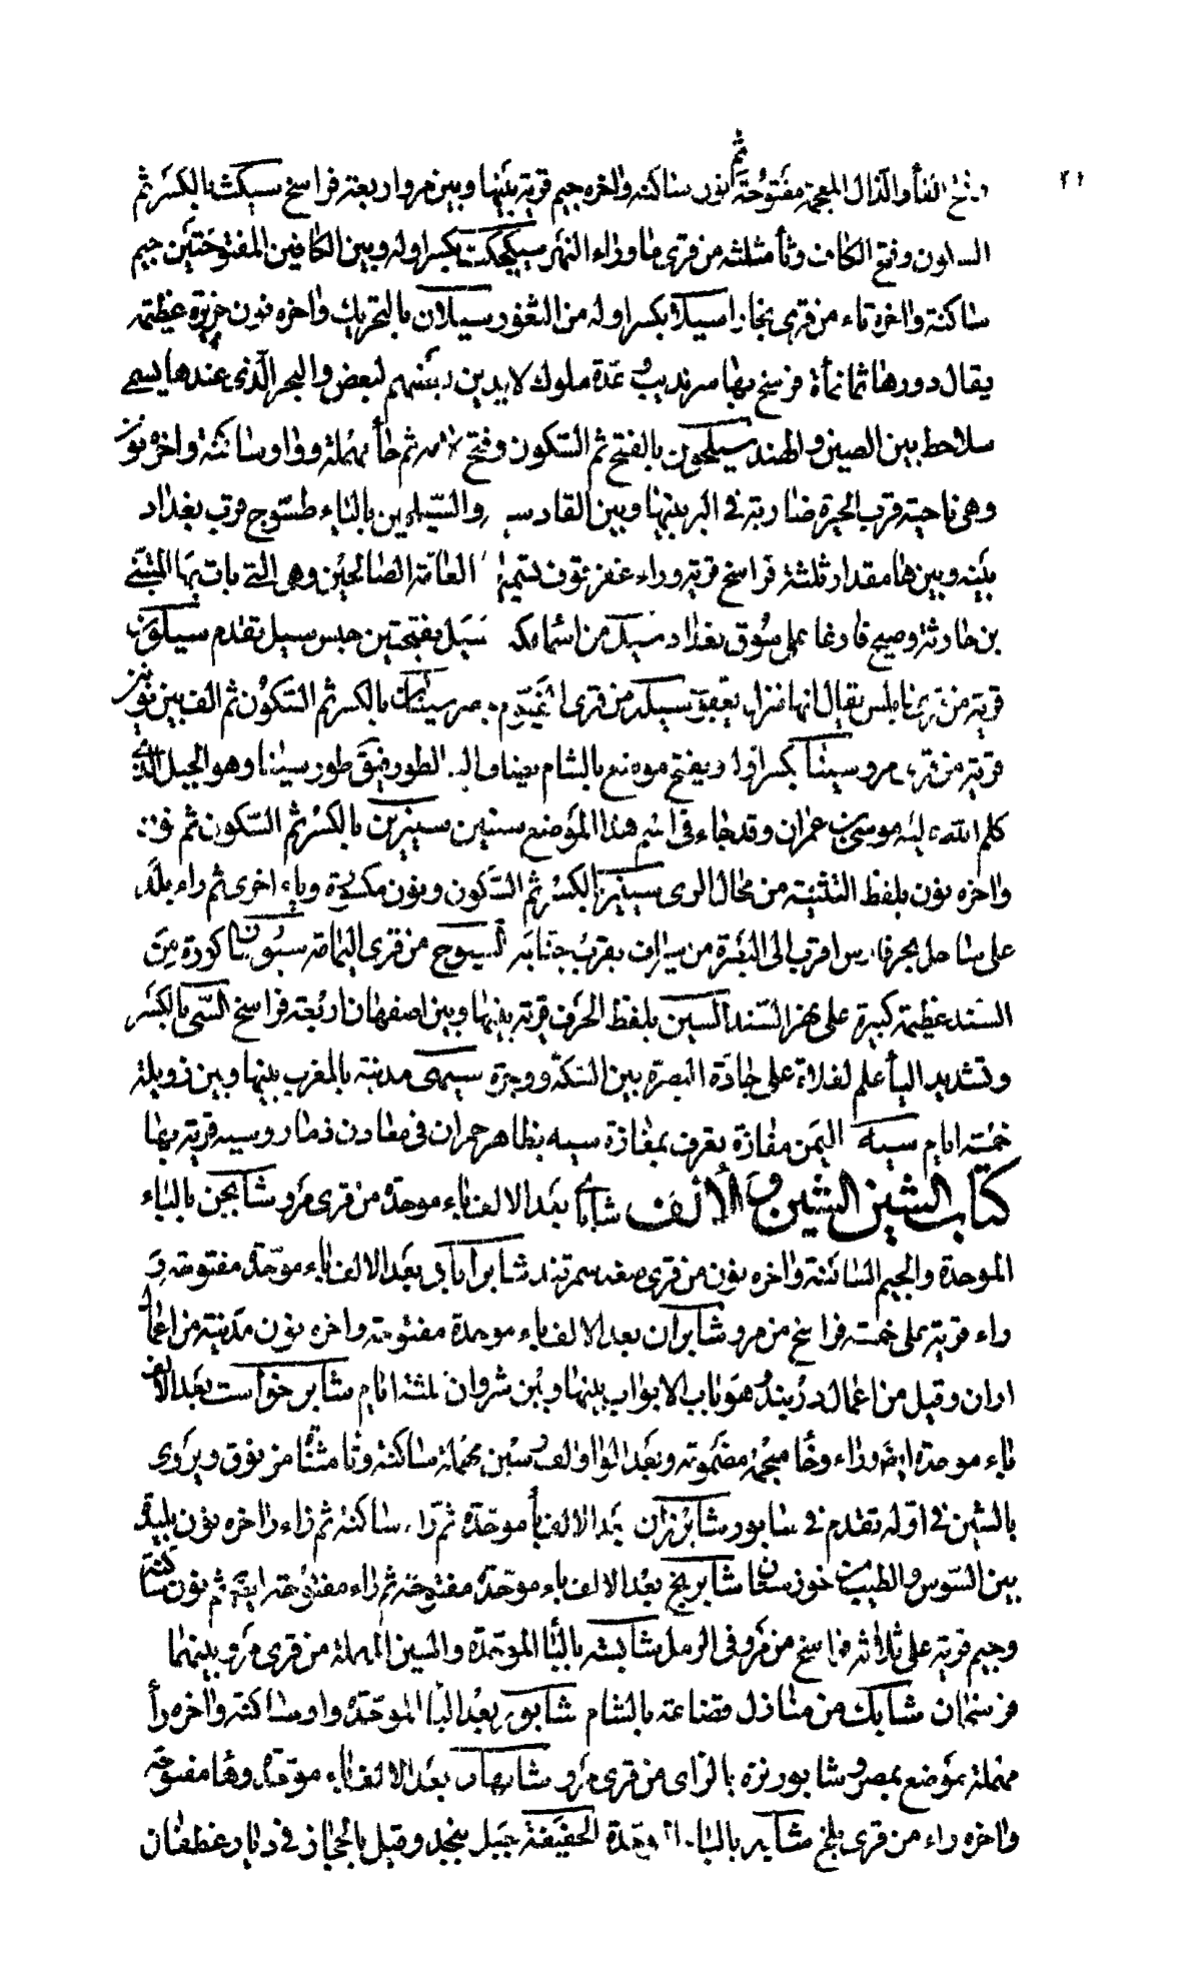 ٢١
بفتح الفاء والذال المعجمة مفتوحة ثم نون ساكنة واخره جيم قرية بينها وبين مرو اربعة فراسخ سيكث بالكسر ثم
السكون وفتح الكاف وثاء مثلثة من قرى ما وراء النهر سيكجكث بكسر اوله وبين الكافين المفتوحتين جيم
ساكنة واخره ثاء من قرى بخارا سيلا بكسر اوله من الثغور سيلان بالتحريك واخره نون جزيرة عظيمة
يقال دورها ثمانمأة فرسخ بها سرنديب عدة ملوك لا يدين بعضهم لبعض والبحر الذى عندها يسمى
سلاحط بين الصين والهند سيلحون بالفتح ثم السكون وفتح لامه ثم حاء مهملة وواو ساكنة واخره نون
وهى ناحية قرب الحيرة ضاربة فى البر بينها وبين القادسية والسيلحين بالياء طسوج قرب بغداد
بينه وبينها مقدار ثلثة فراسخ قرية وراء عقرقوف تسميها العامة الصالحين وهى التى بات بها المثنى
بن حارثة وصبح فارغا على سوق بغداد سيل من اسماء مكة سيل بفتحتين حبس سيل تقدم سيلون
قرية من قرى نابلس يقال انها منزل يعقوب سيلة من قرى الفيوم بمصر سينان بالكسر ثم السكون ثم الف بين نونين
قرية من قرى مرو سينا بكسر اوله ويفتح موضع بالشام يضاف اليه الطور فيقال طور سينا وهو الجبل الذى
كلم الله عليه موسى بن عمران وقد جاء فى اسم هذا الموضع سنين سينين بالكسر ثم السكون ثم
واخره نون بلفظ التثنية من محال الرى سينيز بالكسر ثم السكون ونون مكسورة وياء اخرى ثم زاء بلد
على ساحل بحر فارس اقرب الى البصرة من سيراف بقرب جنابه السيوح من قرى اليمامة سيوستان كورة من
السند عظيمة كبيرة على نهر السند السين بلفظ الحرف قرية بينها وبين اصفهان اربعة فراسخ السى بالكسر
وتشديد الياء علم لفلاة على جادة البصرة بين الشبكة ووجرة سيمى مدينة بالمغرب بينها وبين زويلة
خمسة ايام سيه اليمن مفازة يعرف بمفازة سيه بظاهر حمران فى معادن ذمار وسيه قرية بها
كتاب الشين الشين والالف شاباى بعد الالف باء موحدة من قرى مرو شابجن بالباء
الموحدة والجيم الساكنة واخره نون من قرى صغد سمرقند شابراباد بعد الالف باء موحدة مفتوحة و
راء قرية على خمسة فراسخ من مرو شابران بعد الالف باء موحدة مفتوحة واخره نون مدينة من اعمال
اران وقيل من اعمال دربند هو باب الابواب بينها وبين شروان ثلثة ايام شابرخواست بعد الالف
باء موحدة ايضا وراء وخاء معجمة مضمومة وبعد الواو الف وسين مهملة ساكنة وتاء مثناة من فوق ويروى
بالسين فى اوله تقدم فى سابور شابرزان بعد الالف باء موحدة ثم راء ساكنة ثم زاء واخره نون بليدة
بين السوس والطيب من خوزستان شابرنج بعد الالف باء موحدة مفتوحة ثم راء مفتوحة ايضا ثم نون ساكنة
وجيم قرية على ثلاثة فراسخ من مرو فى الرمل شابسه بالباء الموحدة والسين المهملة من قرى مرو بينهما
فرسخان شابك من منازل قضاعة بالشام شابور بعد الباء الموحدة واو ساكنة واخره راء
مهملة موضع بمصر وشابورزه بالزاى من قرى مرو شابهار بعد الالف باء موحدة وهاء مفتوحة
واخره راء من قرى بلخ شابه بالباء الموحدة الخفيفة جبل بنجد وقيل بالحجاز فى ديار غطفان